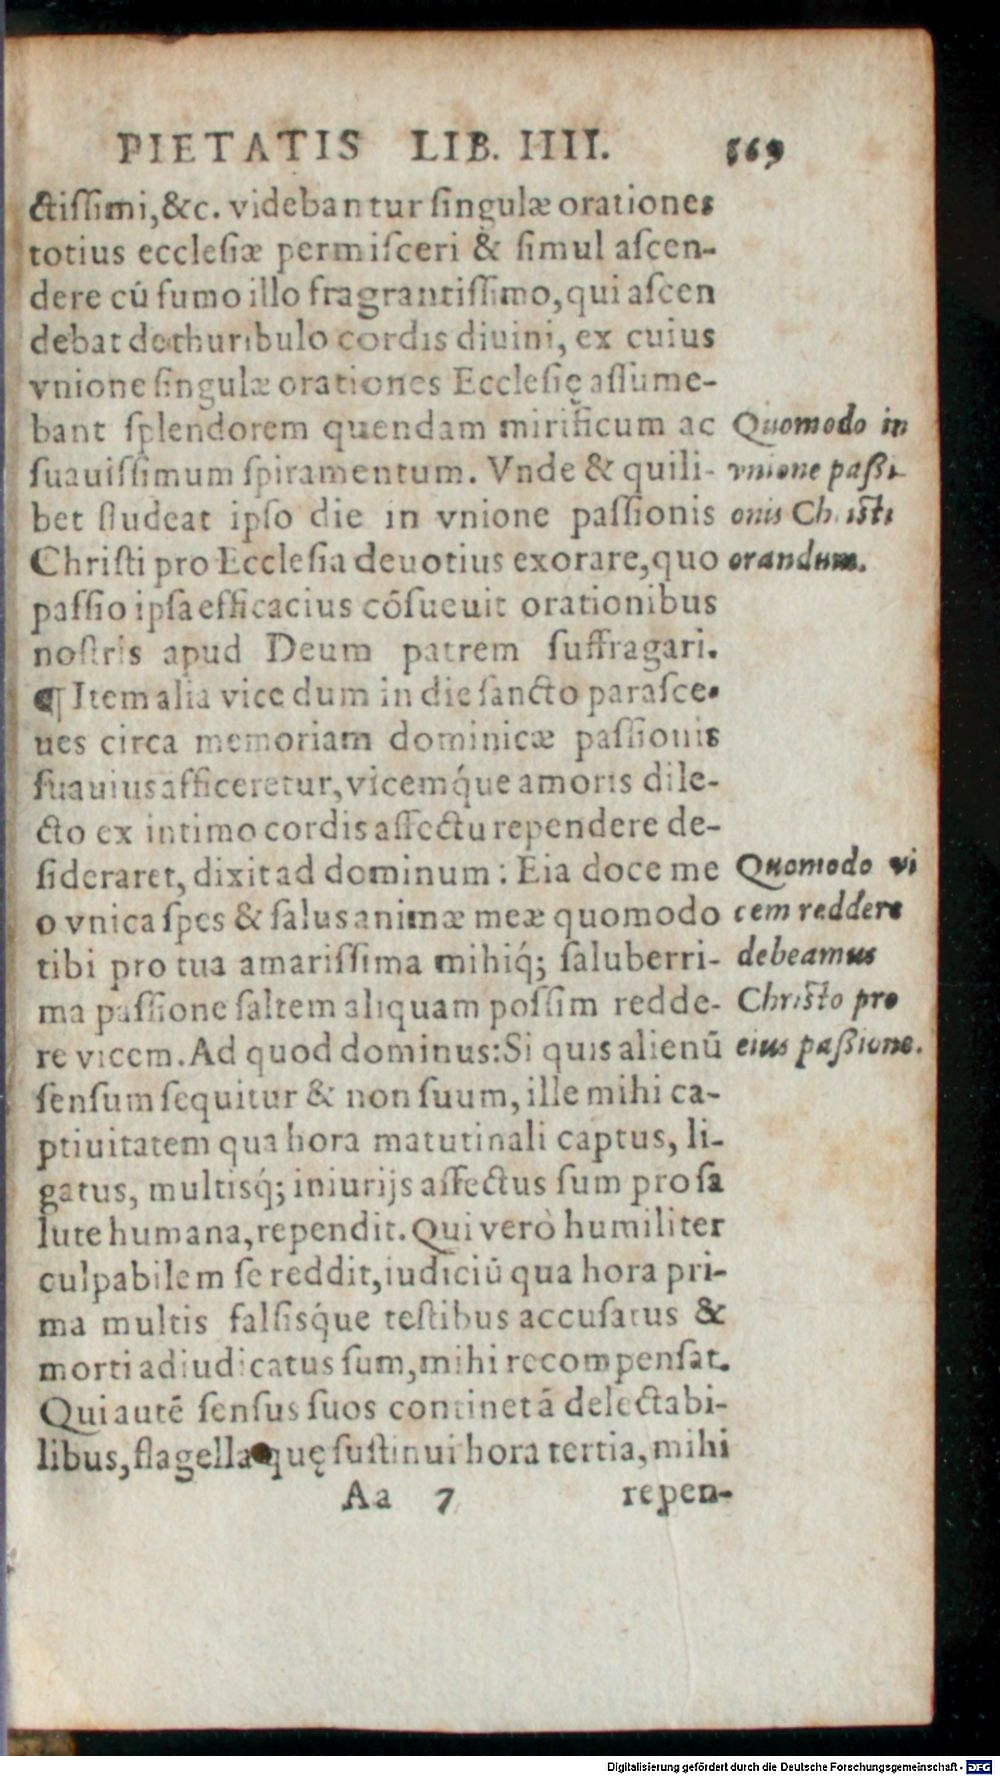 PIETATIS LIB. IIII. 569
ctissimi,&c. videbantur singulæ orationes
totius ecclesiæ permisceri & simul ascen-
dere cū fumo illo fragrantissimo,qui ascen
debat de thuribulo cordis diuini, ex cuius
vnione singulæ orationes Ecclesię assume-
bant splendorem quendam mirificum ac
suauissimum spiramentum. Vnde & quili-
bet studeat ipso die in vnione passionis
Christi pro Ecclesia deuotius exorare,quo
passio ipsa efficacius cōsueuit orationibus
nostris apud Deum patrem suffragari.
Quomodo in
vnione passi-
onis Christi
orandum.
¶ Item alia vice dum in die sancto parasce-
ues circa memoriam dominicæ passionis
suauius afficeretur,vicemq́ue amoris dile-
cto ex intimo cordis affectu rependere de-
sideraret, dixit ad dominum: Eia doce me
o vnica spes & salus animæ meæ quomodo
tibi pro tua amarissima mihiq́; saluberri-
ma passione saltem aliquam possim redde-
re vicem. Ad quod dominus:Si quis alienū
sensum sequitur & non suum, ille mihi ca-
ptiuitatem qua hora matutinali captus, li-
gatus, multisq́; iniurijs affectus sum pro sa
lute humana,rependit. Qui verò humiliter
culpabilem se reddit,iudiciū qua hora pri-
ma multis falsisq́ue testibus accusatus &
morti adiudicatus sum,mihi recompensat.
Qui autē sensus suos continet ā delectabi-
libus,flagella quę sustinui hora tertia, mihi
Quomodo vi
cem reddere
debeamus
Christo pro
eius passione.
Aa 7 repen-
Digitalisierung gefördert durch die Deutsche Forschungsgemeinschaft - DFG